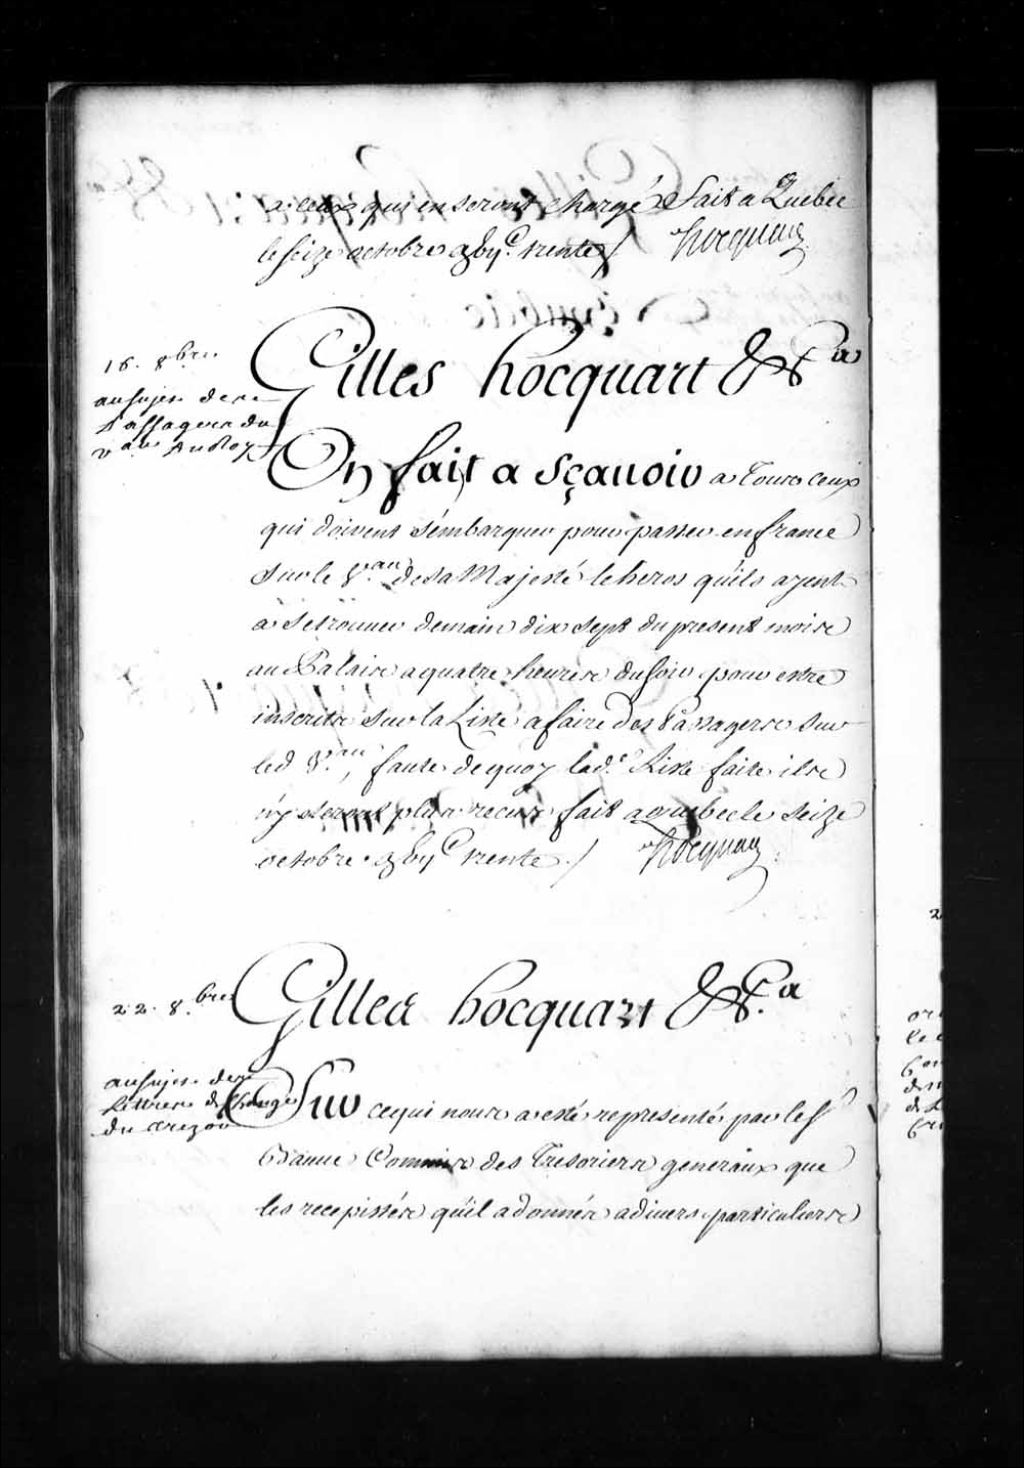 a ceux qui en seront chargés Fait a Quebec
le seize octobre gbyc trente / hocquart
16. 8bre
au sujet des
Passagers du
vau du Roy
Gilles hocquart &ca
On fait a sçavoir a tous ceux
qui doivent s'embarquer pour passer en france
sur le Vau de sa Majesté le heros qu'ils ayent
a se trouver demain dix sept du present mois
au Palais a quatre heures du soir pour estre
inscrits sur la Liste a faire des Passagers sur
led Vau, faute de quoy lad.e Liste faite ils
n'y seront plus recus fait a quebec le seize
octobre gbyc trente ./ hocquart
22. 8bre
au sujet des
Lettres de Change
du trezor
Gilles hocquart &ca
Sur ce qui nous a esté representé par le S
Commis des Tresoriers generaux que
les recepissés qu'il a donnés a divers particuliers